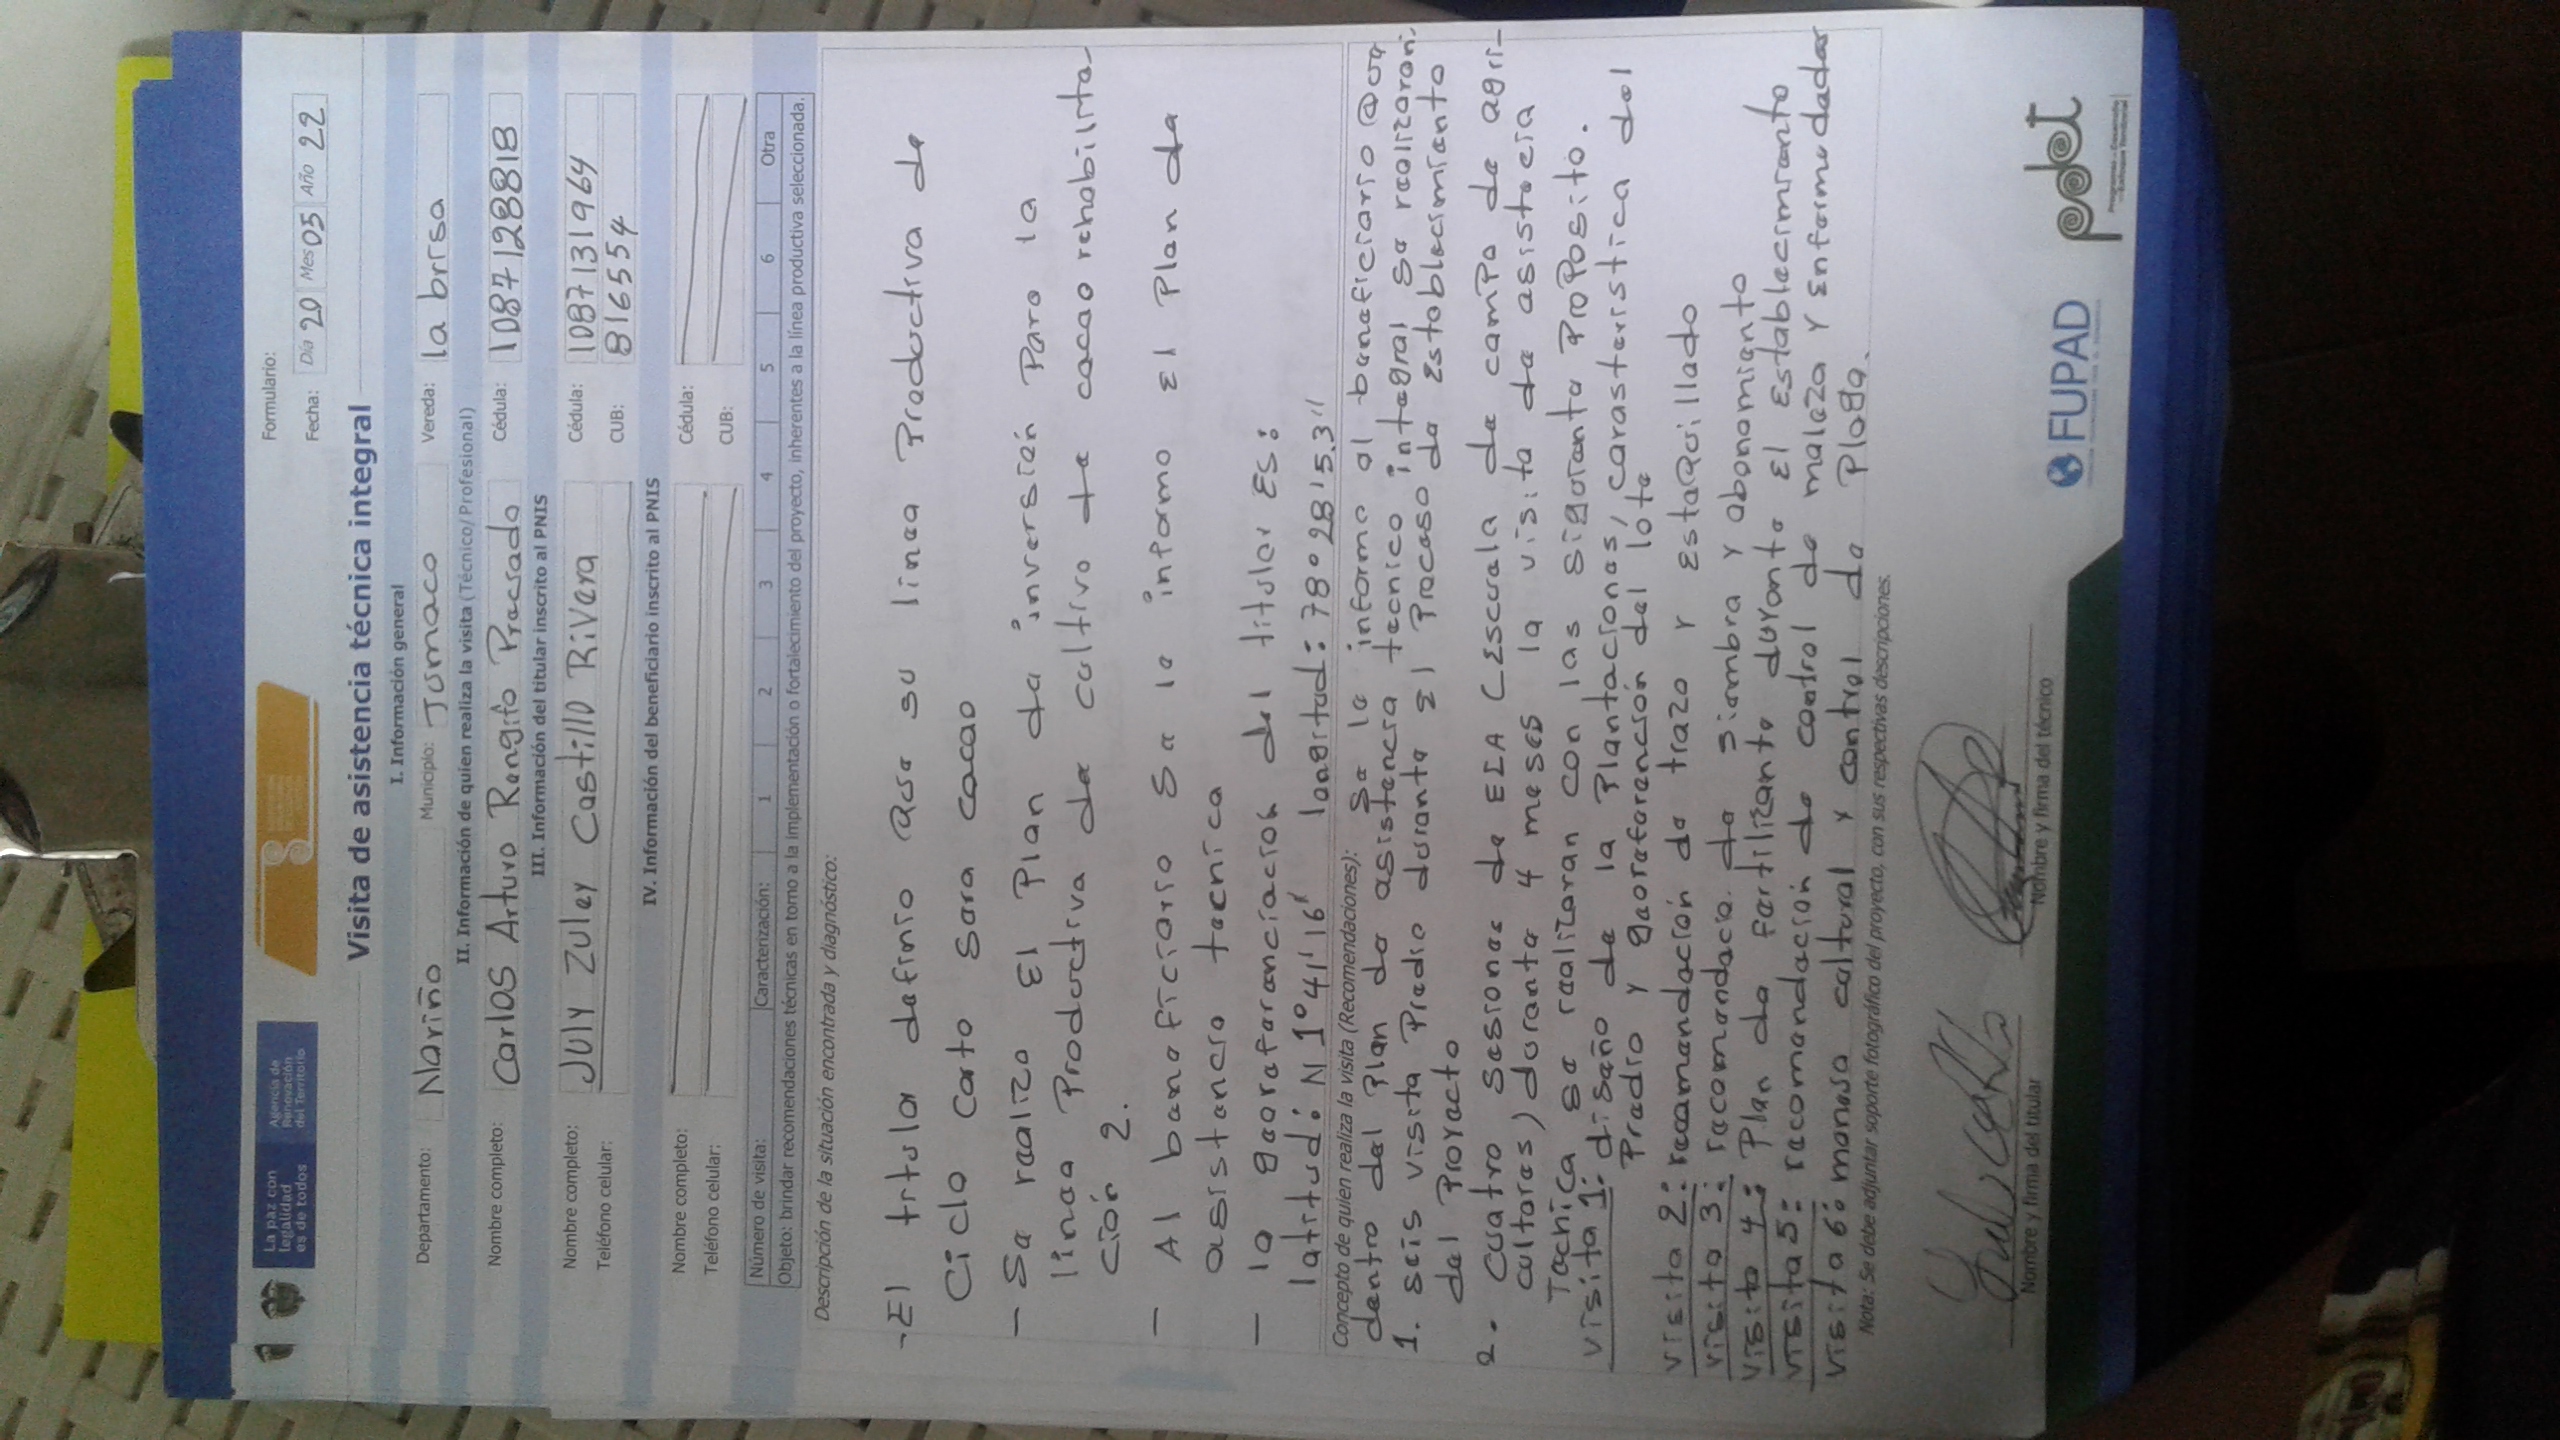 La paz con
legalidad
es de todos
Agencia de
Renovación
del Territorio
Formulario:
Fecha: Día 20 Mes 05 Año 22
Visita de asistencia técnica integral
I. Información general
Departamento: Nariño Municipio: Tumaco Vereda: la brisa
II. Información de quien realiza la visita (Técnico/Profesional)
Nombre completo: Carlos Arturo Rengifo Preciado Cédula: 1087128818
III. Información del titular inscrito al PNIS
Nombre completo: July Zuley Castillo Rivera Cédula: 1087131964
Teléfono celular: CUB: 816554
IV. Información del beneficiario inscrito al PNIS
Nombre completo: Cédula:
Teléfono celular: CUB:
Número de visita: Caracterización: 1 2 3 4 5 6 Otra
Objeto: brindar recomendaciones técnicas en torno a la implementación o fortalecimiento del proyecto, inherentes a la línea productiva seleccionada.
Descripción de la situación encontrada y diagnóstico:
- El titular definio que su linea Productiva de
Ciclo corto sera cacao
- Se realizo El Plan de inversión Para la
linea Productiva de cultivo de cacao rehabilita-
ción 2.
- Al beneficiario se le informo El Plan de
asistencia tecnica
- la georeferenciación del titular Es:
latitud: N 1° 41' 16" longitud: 78° 28' 5.3"
Concepto de quien realiza la visita (Recomendaciones): Se le informo al beneficiario que
dentro del Plan de asistencia tecnico integral se realizaron:
1. seis visita Predio durante El Proceso de Establecimiento
del Proyecto
2. Cuatro sesiones de ECA (Escuela de campo de agri-
cultores) durante 4 meses la visita de asistecia
Técnica se realizaran con las siguiente Proposito.
visita 1: diseño de la Plantaciones, carasteristica del
Predio y georeferención del lote
visita 2: recomendación de trazo y Estaquillado
visita 3: recomendacio. de siembra y abonomiento
visita 4: Plan de fertilizante durante El Establecimiento
visita 5: recomendación de control de maleza y Enformedades
visita 6: manejo cultural y control de Plaga.
Nota: Se debe adjuntar soporte fotográfico del proyecto, con sus respectivas descripciones.
Nombre y firma del titular
Nombre y firma del técnico
FUPAD
pdet